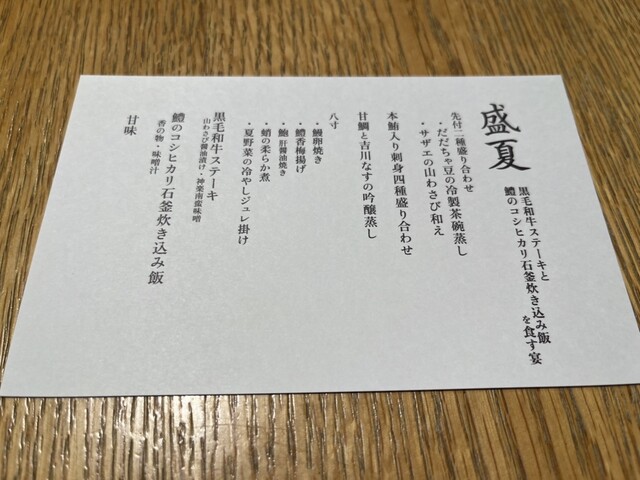 盛夏
黒毛和牛ステーキと
鱧のコシヒカリ石釜炊き込み飯
を食す宴
先付二種盛り合わせ
・だだちゃ豆の冷製茶碗蒸し
・サザエの山わさび和え
本鮪入り刺身四種盛り合わせ
甘鯛と吉川なすの吟醸蒸し
八寸
・鰻卵焼き
・鱧香梅揚げ
・鮑肝醤油焼き
・蛸の柔らか煮
・夏野菜の冷やしジュレ掛け
黒毛和牛ステーキ
山わさび醤油漬け・神楽南蛮味噌
鱧のコシヒカリ石釜炊き込み飯
香の物・味噌汁
甘味